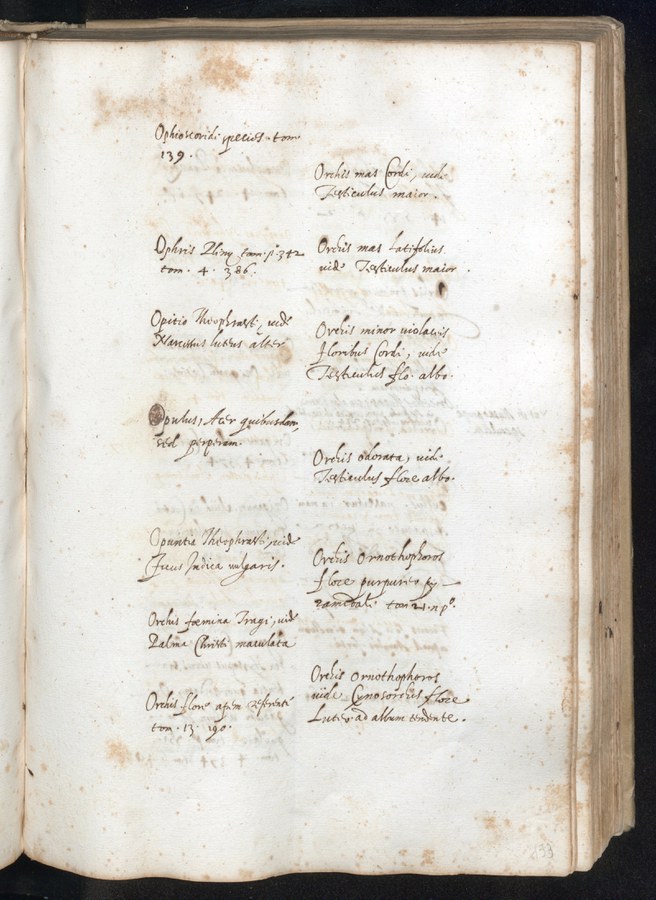 Ophioscoridi species tom
139.
Ophris Pliny tom. p.º 342
tom. 4. 386.
Opitio Theophrasti, uide
Narcissus luteus alter
Opulus, Acer quibusdam,
sed perperam.
Opuntia Theophrasti, uide
Ficus Indica uulgaris.
Orchis fœmina Tragi, uide
Palma Christi maculata
Orchis flore apem referenti
tom. 13. 190.
Orchis mas Cordi, uide
Testiculus maior.
Orchis mas latifolius
uide Testiculus maior.
Orchis minor uiolaceis
floribus Cordi, uide
Testiculus flo. albo.
Orchis odorata, uide
Testiculus flore albo.
Orchis Ornothophoros
flore purpureo
tom 21. n. pº.
Orchis Ornothophoros
uide Cynosorchis flore
Luteo ad album tendente.
133